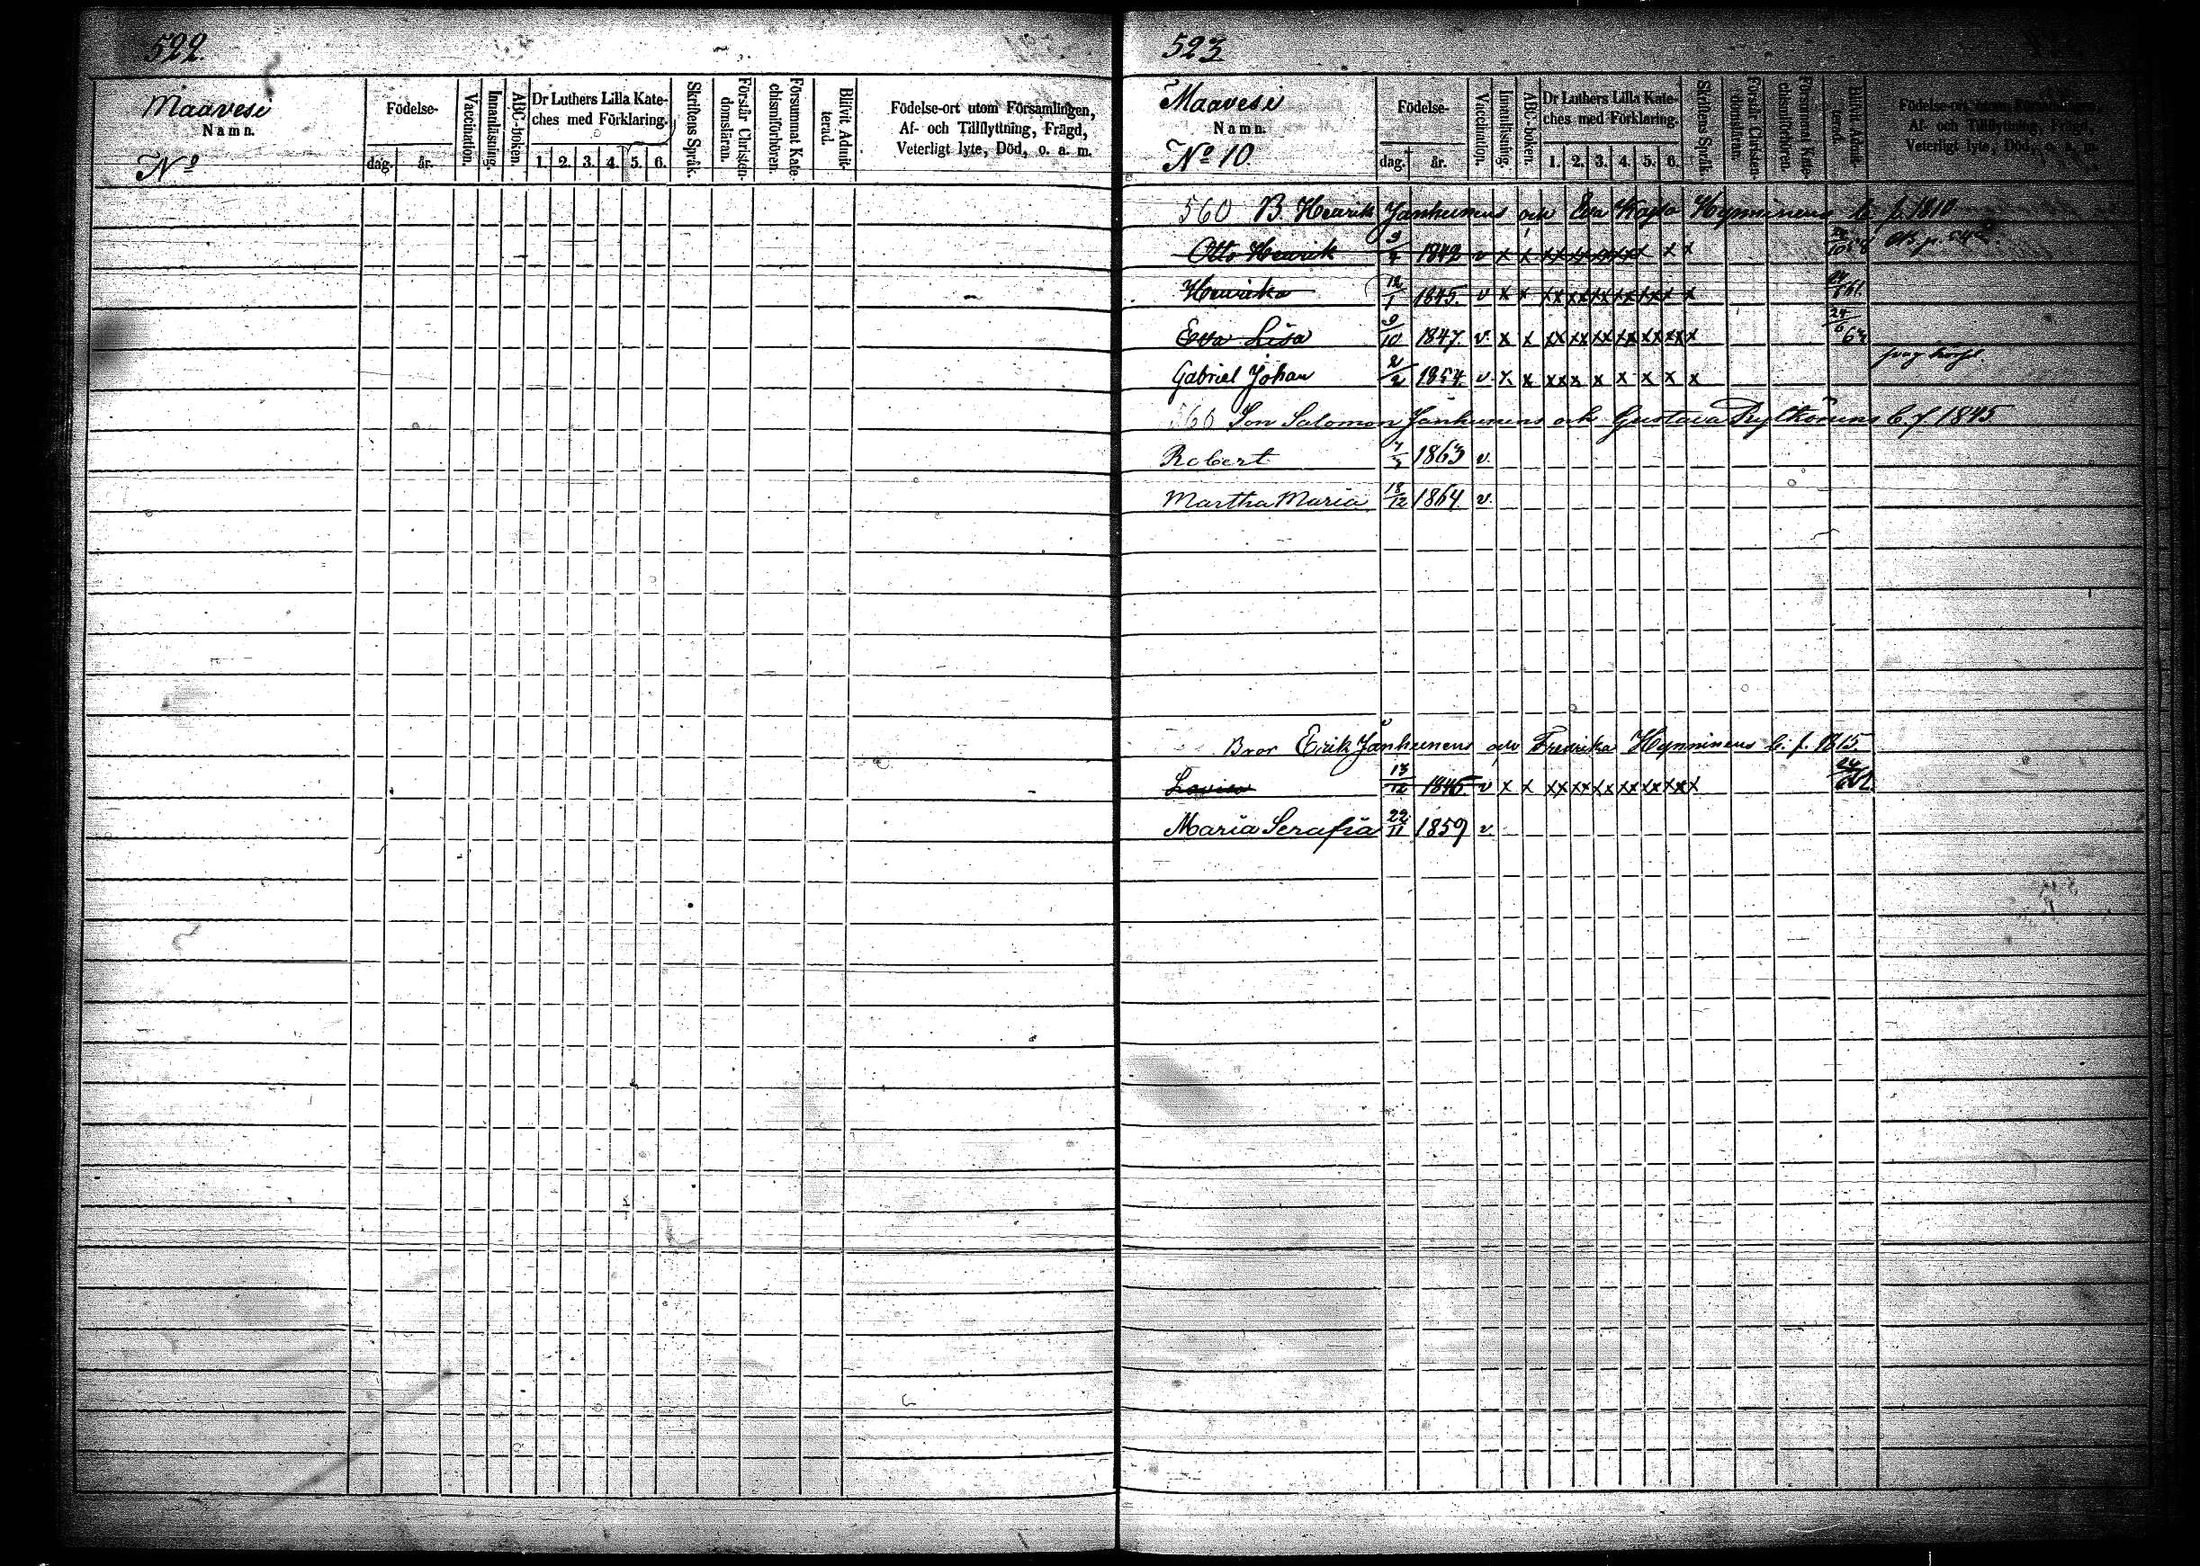 522.
Maavesi
Namn.
No
Födelse-
dag.
år.
Vaccination.
Innanläsning.
ABC-boken.
Dr Luthers Lilla Kate-
ches med Förklaring.
1. 2. 3. 4. 5. 6.
Skriftens Språk.
Förstår Christen-
domsläran.
Försummat Kate-
chismiförhören.
Blifvit Admit-
terad.
Födelse-ort utom Församlingen,
Af- och Tillflyttning, Frägd,
Veterligt lyte, Död, o. a. m.
523
Maavesi
Namn.
No 10.
Födelse-
dag.
år.
Vaccination.
Innanläsning.
ABC-boken.
Dr Luthers Lilla Kate-
ches med Förklaring.
1. 2. 3. 4. 5. 6.
Skriftens Språk.
Förstår Christen-
domsläran.
Försummat Kate-
chismiförhören.
Blifvit Admit-
terad.
Födelse-ort utom Församlingen,
Af- och Tillflyttning, Frägd,
Veterligt lyte, Död, o. a. m.
560 B. Henrik Janhunens och Eva Kajsa Hynninens b. f. 1810
Otto Henrik 1842 v x x xx xx xx xx x x x
Henrika 12/1 1845. v x x xx xx xx xx xx x
Eva Lisa 9/10 1847. v. x x xx xx xx xx xx xx 24/6 63
Gabriel Johan 2/2 1854. v. x. x xx x x x x x x
560 Son Salomon Janhunens och Gustava Pylkönens b. f. 1845.
Robert 1863 v.
Martha Maria 18/12 1864. v.
Bror Erik Janhunens och Fredrika Hynninens b. f. 1815.
13/12 1846 v x x xx xx xx xx xx xx
Maria Serafia 22/11 1859 v.